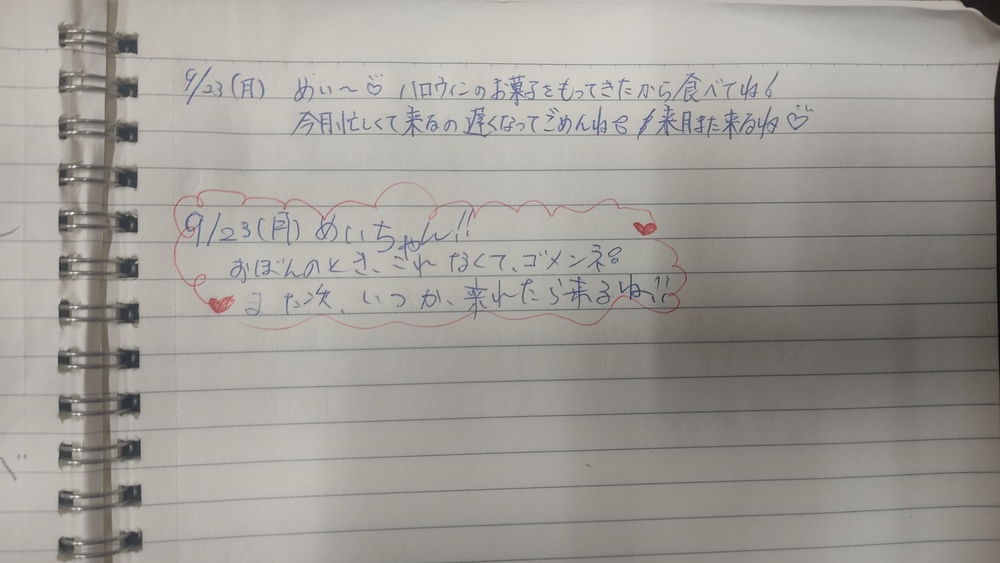 9/23(月) めぃ～♡ ハロウィンのお菓子をもってきたから食べてね!
今月忙しくて来るの遅くなってごめんね 来月また来るね♡
9/23(月) めいちゃん!!
おぼんのとき、これなくて、ゴメンネ。
また次、いつか、来れたら来るね!!